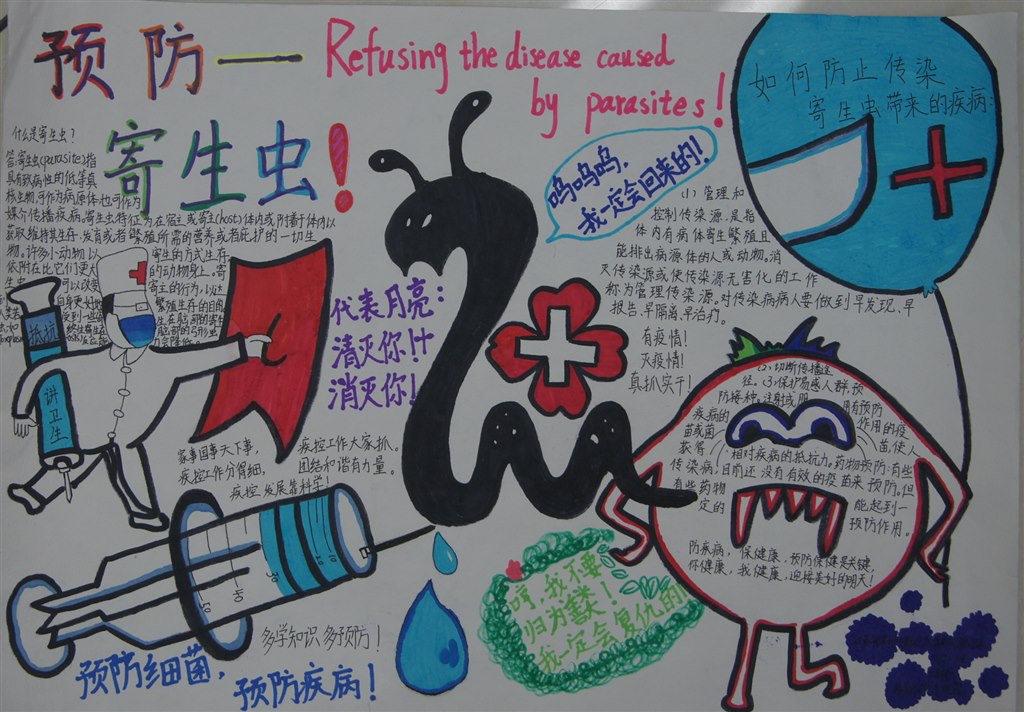 预防一
Refusing the disease caused
by parasites!
寄生虫!
什么是寄生虫?
答:寄生虫(parasites)指
具有致病性的低等真
核生物,可作为病原体,也可作为
媒介传播疾病。寄生虫特征为在宿主或寄主(host)体内或附着于体外以
获取维持其生存、发育或者繁殖所需的营养或者庇护的一切生
物。许多小动物以寄生的方式生存,
依附在比它们更大的动物身上。寄
可以改变寄主的行为,以达
繁殖生存的目的
抵抗
讲卫生
代表月亮:
清灭你!忄
消灭你!
呜呜呜,
我一定会回来的!
如何防止传染
寄生虫带来的疾病:
(1)管理和
控制传染源,是指
体内有病体寄生繁殖且
能排出病源体的人或动物。消
灭传染源或使传染源无害化的工作
称为管理传染源。对传染病病人要做到早发现、早
报告、早隔离、早治疗。
有疫情!
灭疫情!
真抓实干!
(2)切断传播途
径。(3)保护易感人群,预
防接种。注射或服用有预防
疾病的作用的疫
苗或菌苗,使人
获得相对疾病的抵抗力。药物预防:有些
传染病,目前还没有有效的疫苗来预防。但
有些药物能起到一
定的预防作用。
防疾病,保健康,预防保健是关键,
你健康,我健康,迎接美好的明天!
家事国事天下事,
疾控工作分得细,
疾控发展靠科学!
疾控工作大家抓。
团结和谐有力量。
10
20
30
40
50
多学知识多预防!
预防细菌,
预防疾病!
哼,我不要
归为害类!
我一定会复仇的